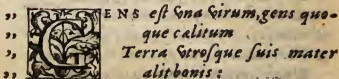 „ GENS est vna virum, gens quo-
„ que cælitum
„ Terra vtrosque suis mater
„ alit bonis: